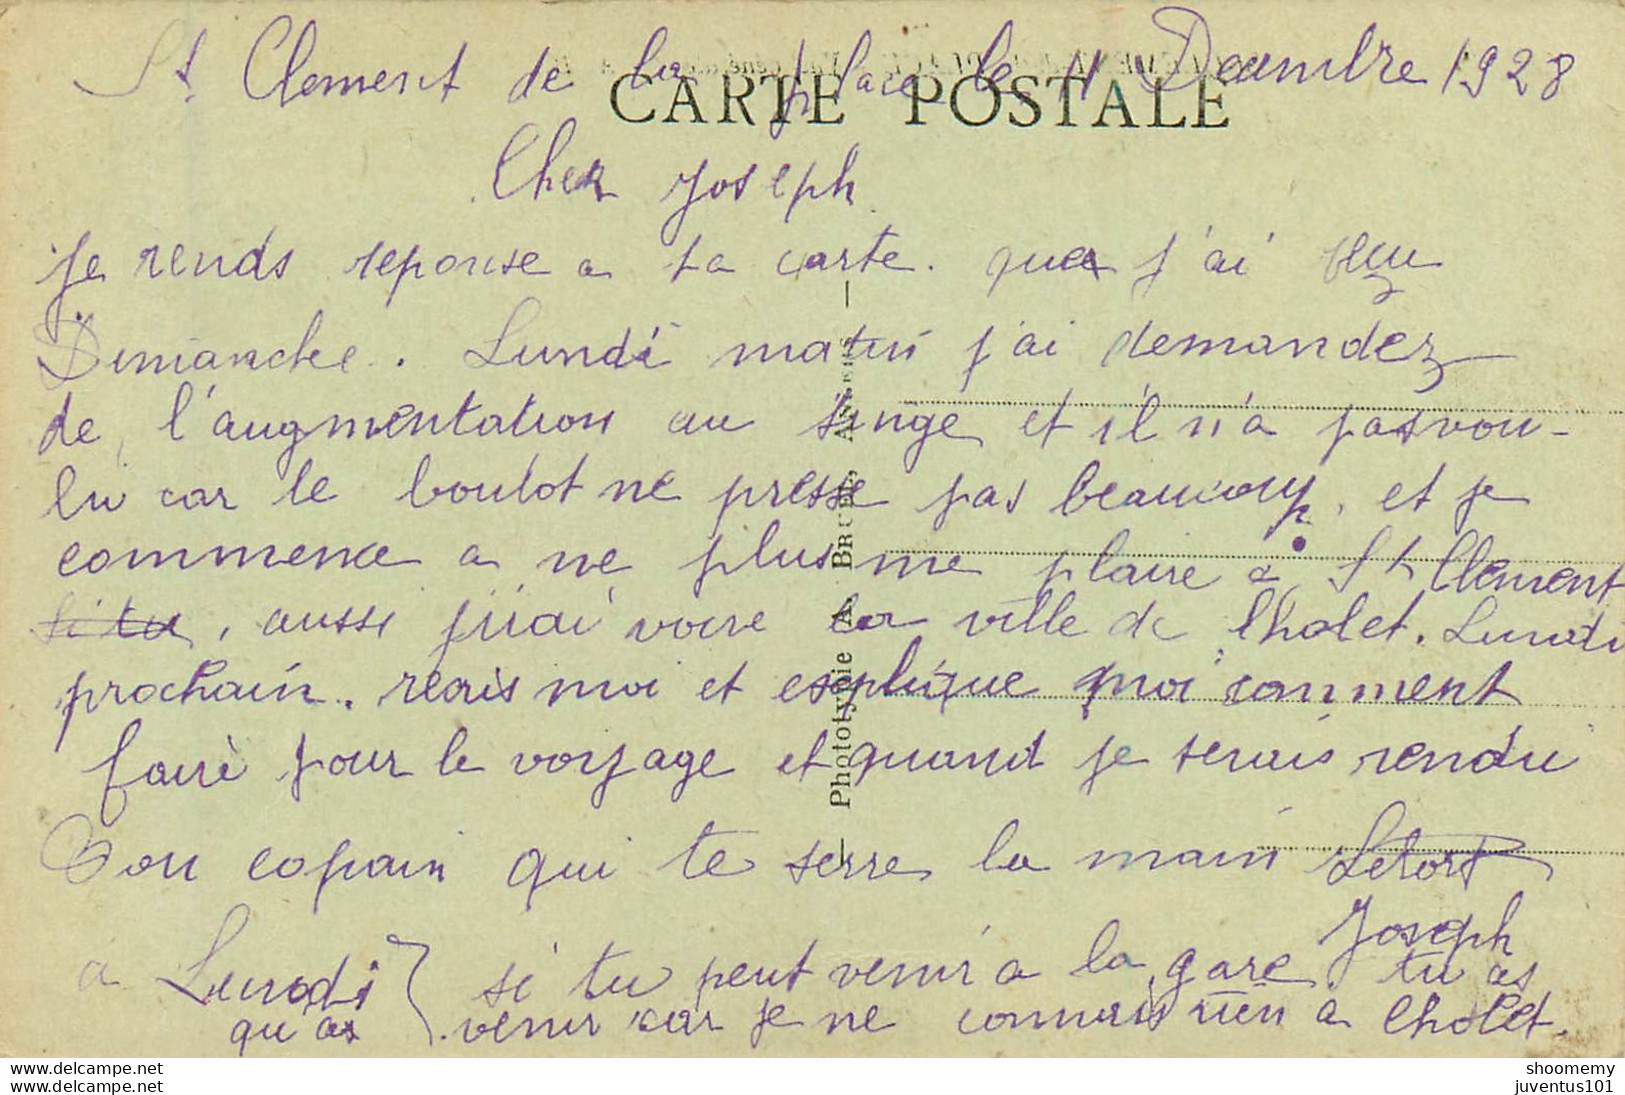 St Clement de la place le 11 Decembre 1928
CARTE POSTALE
Cher Joseph
je rends reponse a ta carte. que j'ai reçu
Dimanche. Lundi matin j'ai demandez
de l'augmentation au singe et il n'a pas vou-
lu car le boulot ne presse pas beaucoup, et je
commence a ne plus me plaire a St Clement
si tu, aussi j'irai voire la ville de Cholet. Lundi
prochain. recris moi et esplique moi comment
faire pour le voyage et quand je serais rendu
Ton copain qui te serre la main Letort
Joseph
a Lundi si tu peut venir a la gare tu as
qu'as venir car je ne connais rien a Cholet.
— Phototypie A. Bruel, Angers —
shoomemy shoomemy
juventus101 juventus101